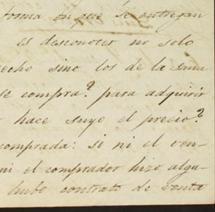 forma en que se entregan
es desconocer no solo
echo sino los de la
se compra? para adquirir
hace suyo el precio?
comprada: si ni el
ni el comprador hizo algu
hubo contrato de venta